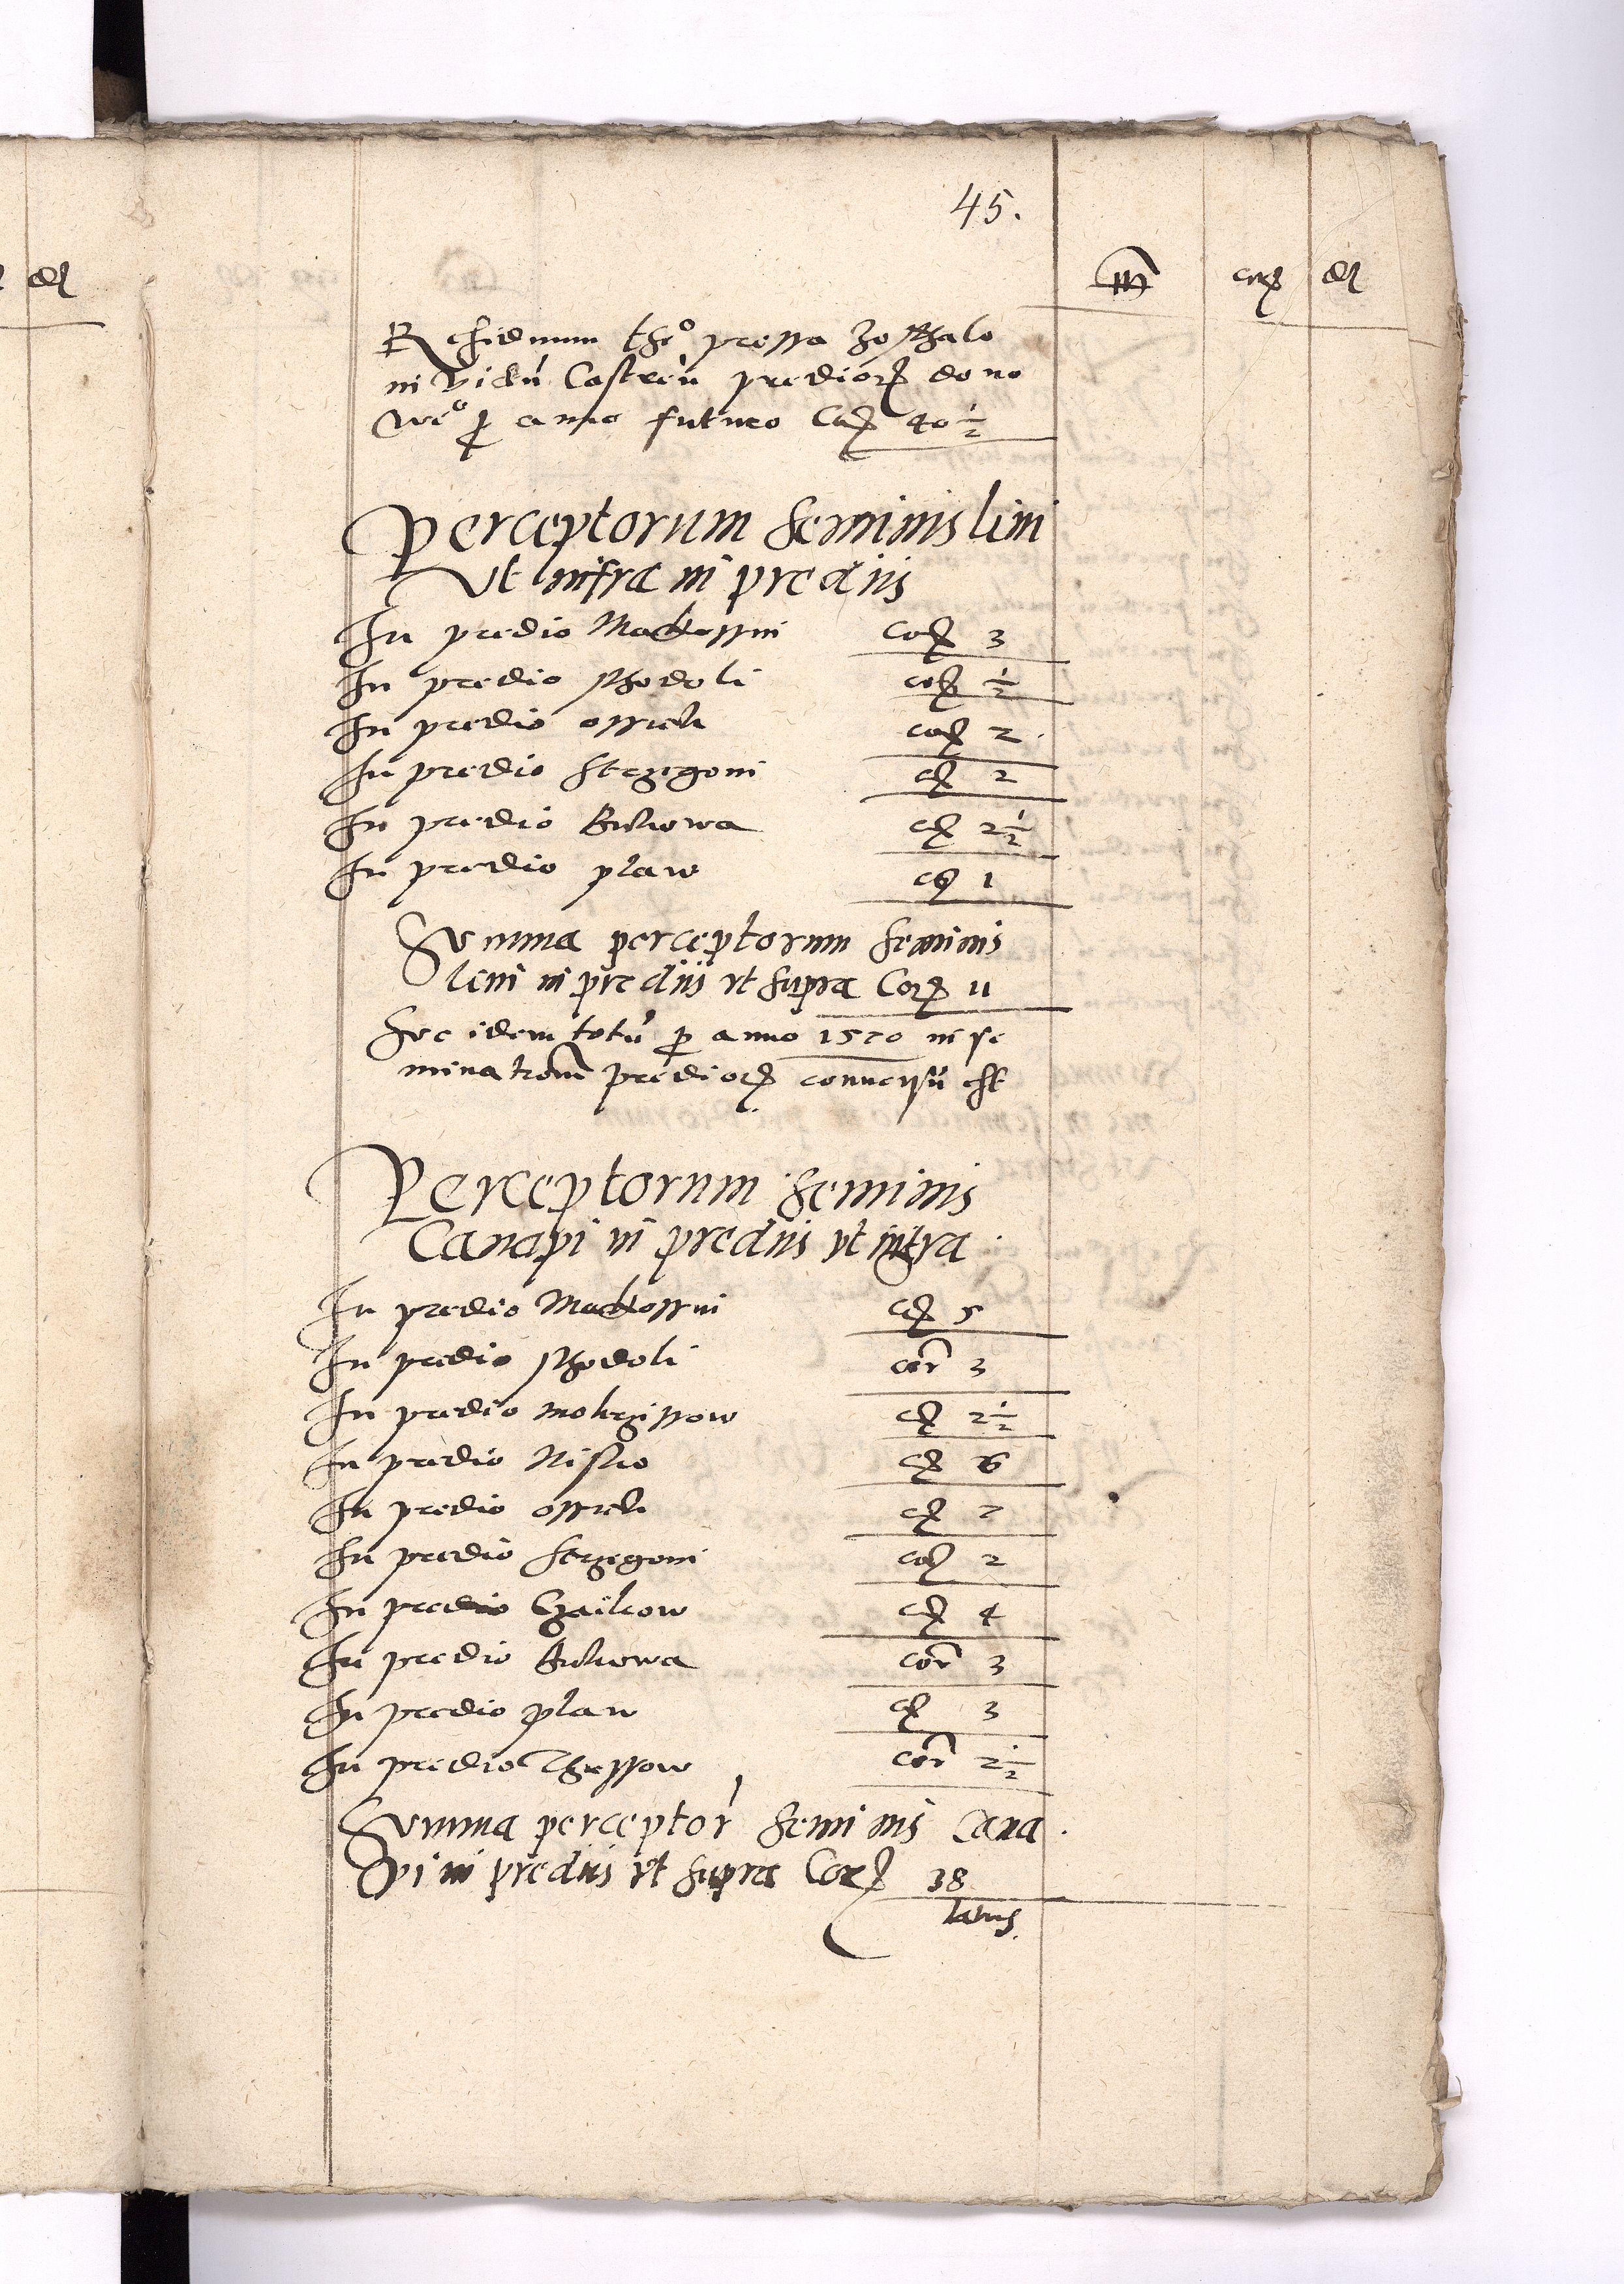 45.
dl
m corꝫ dl
Residuum th° pressa zosthalo
in victū Castren̄ predioꝝ de no
p anno futuro Corꝫ 40 1/2
Perceptorum seminis lini
vt infra in prediis
In predio Mackossin Corꝫ 3
In predio Rhodoli corꝫ 1/2
In predio ossiek corꝫ 2
In predio Strzegom cꝫ 2
In predio Bukowa cꝫ 2 1/2
In predio plaw cꝫ 1
Summa perceptorum seminis
lini in prediis vt supra Corꝫ 11
Hec idem totū p anno 1570 in se
minationem predioꝝ conuersū est
Perceptorum seminis
Canapi in prediis vt infra
In predio Mackossin cꝫ 5
In predio Rhodoli cor 3
In predio mokrzissow cꝫ 2 1/2
In predio Nisko cꝫ 6
In predio ossiek cꝫ 7
In predio Strzegom coꝫ 2
In predio Czaikow cꝫ 4
In predio Bukowa cor 3
In predio plaw cꝫ 3
In predio Thrzessow cor 2 1/2
Summa perceptor seminis Cana
pi in prediis vt supra Corꝫ 38
latus